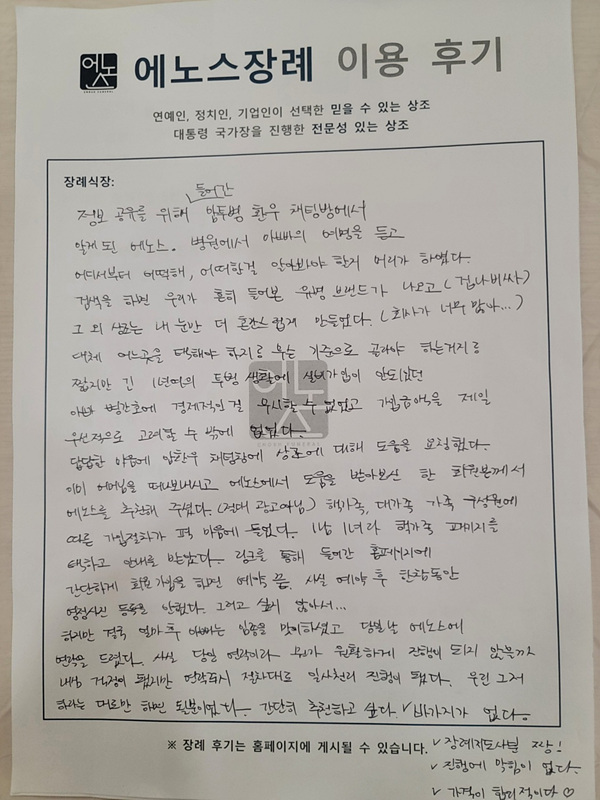 에노스
ENOSE FUNERAL
에노스장례 이용 후기
연예인, 정치인, 기업인이 선택한 믿을 수 있는 상조
대통령 국가장을 진행한 전문성 있는 상조
장례식장:
들어간
정보 공유를 위해 암투병 환우 채팅방에서
알게 된 에노스. 병원에서 아빠의 여명을 듣고
어디서부터 어떡해, 어떠한걸 알아봐야 한지 머리가 하얬다.
검색을 하면 우리가 흔히 들어본 유명 브랜드가 나오고 (겁나비싸)
그 외 상조는 내 눈만 더 혼란스럽게 만들었다. (회사가 너무 많아...)
대체 어느곳을 택해야 하지도 옳은 기준으로 골라야 하는거지도
짧지만 긴 1년여의 투병생활에 실비가입이 안되있던
아빠 병간호에 경제적인걸 무시할 수 없었고 가입금액을 제일
우선적으로 고려할 수 밖에 없었다.
답답한 마음에 암환우 채팅창에 상조에 대해 도움을 요청했다.
이미 어머님을 떠나보내시고 에노스에서 도움을 받아보신 한 회원분께서
에노스를 추천해 주셨다. (절대 광고아님) 핵가족, 대가족 가족 구성원에
따른 가입절차가 퍽 마음에 들었다. 1남 1녀라 핵가족 패키지를
택하고 안내를 받았다. 링크를 통해 들어간 홈페이지에
간단하게 회원가입을 하면 예약 끝. 사실 예약 후 한참동안
영정사진 등록을 안했다. 그러고 싶지 않아서...
하지만 결국 얼마 후 아빠는 임종을 맞이하셨고 당일날 에노스에
연락을 드렸다. 사실 당일 연락이라 뭔가 원활하게 진행이 되지 않을까
내심 걱정이 됐지만 연락즉시 절차대로 일사천리 진행이 됐다. 우린 그저
하라는 대로만 하면 될뿐이었다. 간단히 추천하고 싶다. ✓바가지가 없다.
※ 장례 후기는 홈페이지에 게시될 수 있습니다.
✓장례지도사님 짱!
✓진행에 막힘이 없다.
✓가격이 합리적이다 ♡